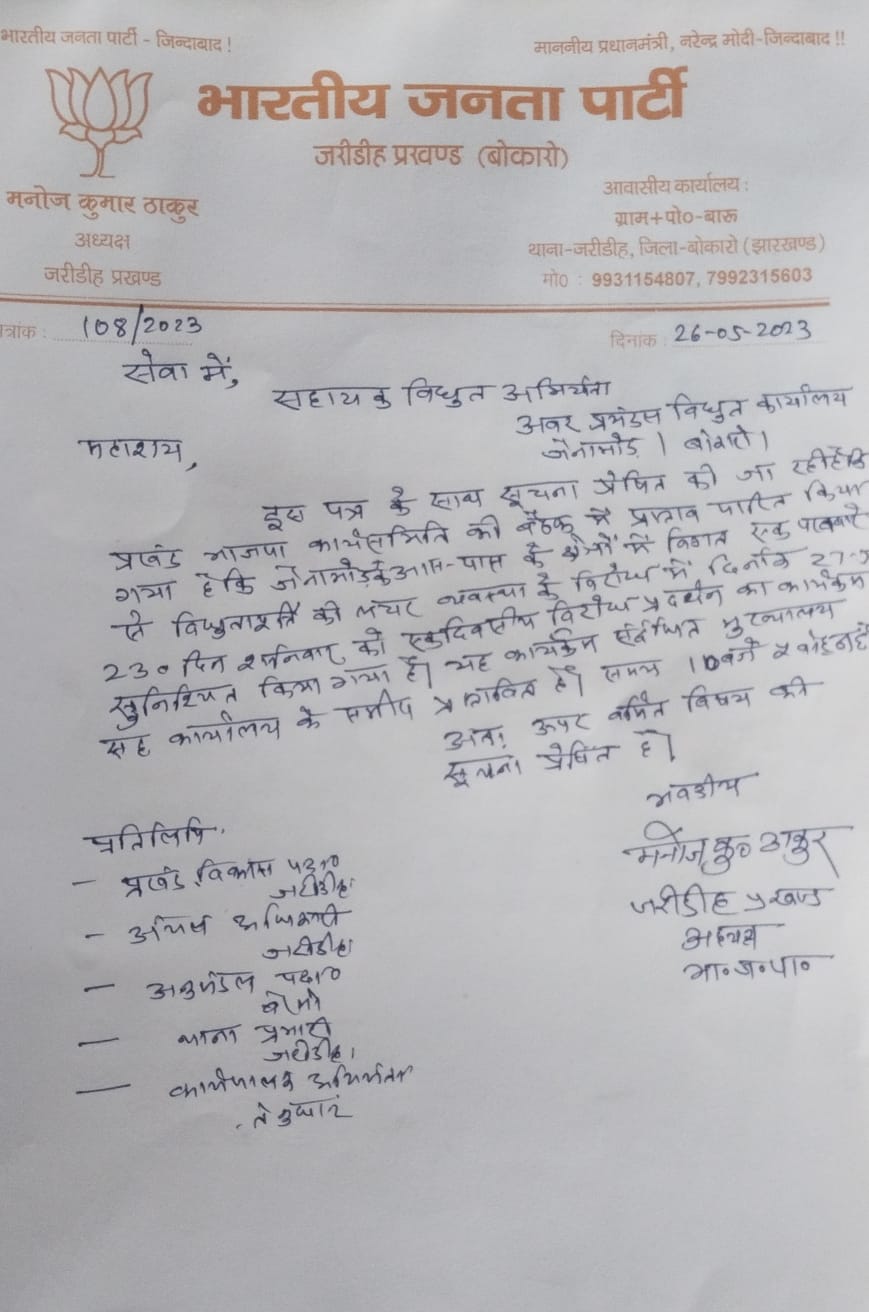 भारतीय जनता पार्टी - जिन्दाबाद !
माननीय प्रधानमंत्री, नरेन्द्र मोदी-जिन्दाबाद !!
भारतीय जनता पार्टी
जरीडीह प्रखण्ड (बोकारो)
मनोज कुमार ठाकुर
अध्यक्ष
जरीडीह प्रखण्ड
आवासीय कार्यालय :
ग्राम+पो०-बारू
थाना-जरीडीह, जिला-बोकारो (झारखण्ड)
मो० : 9931154807, 7992315603
त्रांक : 108/2023
दिनांक : 26-05-2023
सेवा में,
सहायक विधुत अभियंता
अवर प्रमंडल विधुत कार्यालय
जैनामोड़ । बोकारो।
महाशय,
इस पत्र के साथ सूचना प्रेषित की जा रही है कि
प्रखंड भाजपा कार्यसमिति की बैठक में प्रस्ताव पारित किया
गया है कि जैनामोड़ के आस-पास के क्षेत्रों में विगत एक पखवारे
से विधुतापूर्ति की लचर व्यवस्था के विरोध में दिनांक 27-5
23० दिन शनिवार को एकदिवसीय विरोध प्रदर्शन का कार्यक्रम
सुनिश्चित किया गया है। यह कार्यक्रम संबंधित मुख्यालय
सह कार्यालय के समीप प्रस्तावित है। समय 10 बजे
अतः ऊपर वर्णित विषय की
सूचना प्रेषित है।
भवदीय
मनोज कु० ठाकुर
जरीडीह प्रखण्ड
अध्यक्ष
भा०ज०पा०
प्रतिलिपि.
- प्रखंड विकास पदा०
जरीडीह।
- अंचल अधिकारी
जरीडीह।
- अनुमंडल पदा०
बेरमो
- थाना प्रभारी
जरीडीह।
- कार्यपालक अभियंता
तेनुघाट